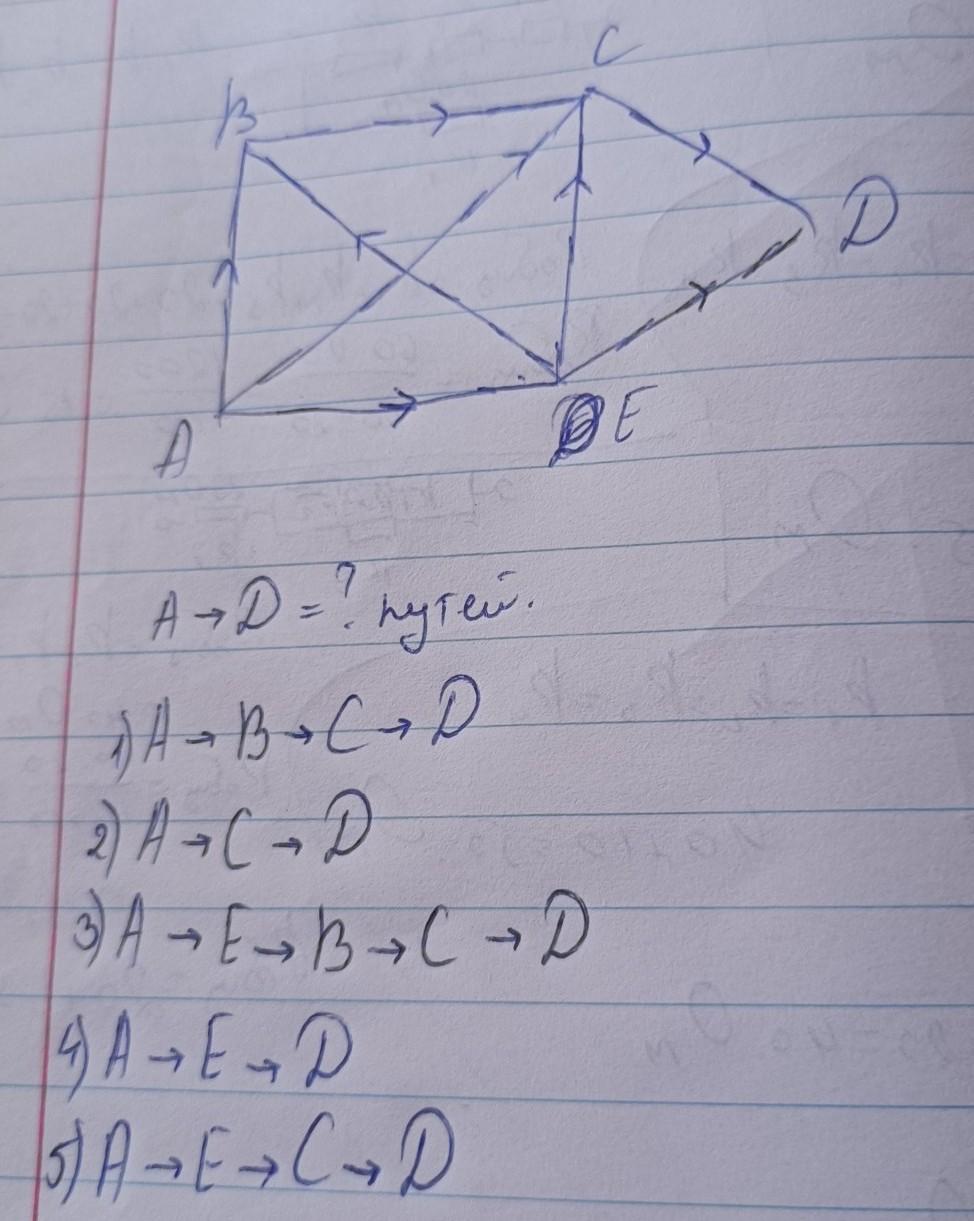 C
B
D
E
A
A → D = ? путей.
1) A → B → C → D
2) A → C → D
3) A → E → B → C → D
4) A → E → D
5) A → E → C → D